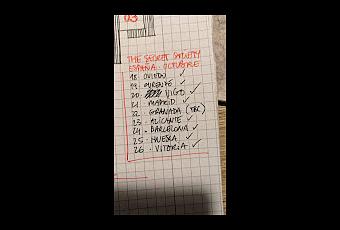 03
THE SECRET SOCIETY
ESPAÑA. OCTUBRE
18. OVIEDO ✓
19. OURENSE ✓
20. VIGO ✓
21. MADRID ✓
22. GRANADA (TBC)
23. ALICANTE ✓
24. BARCELONA ✓
25. HUESCA ✓
26. VITORIA ✓